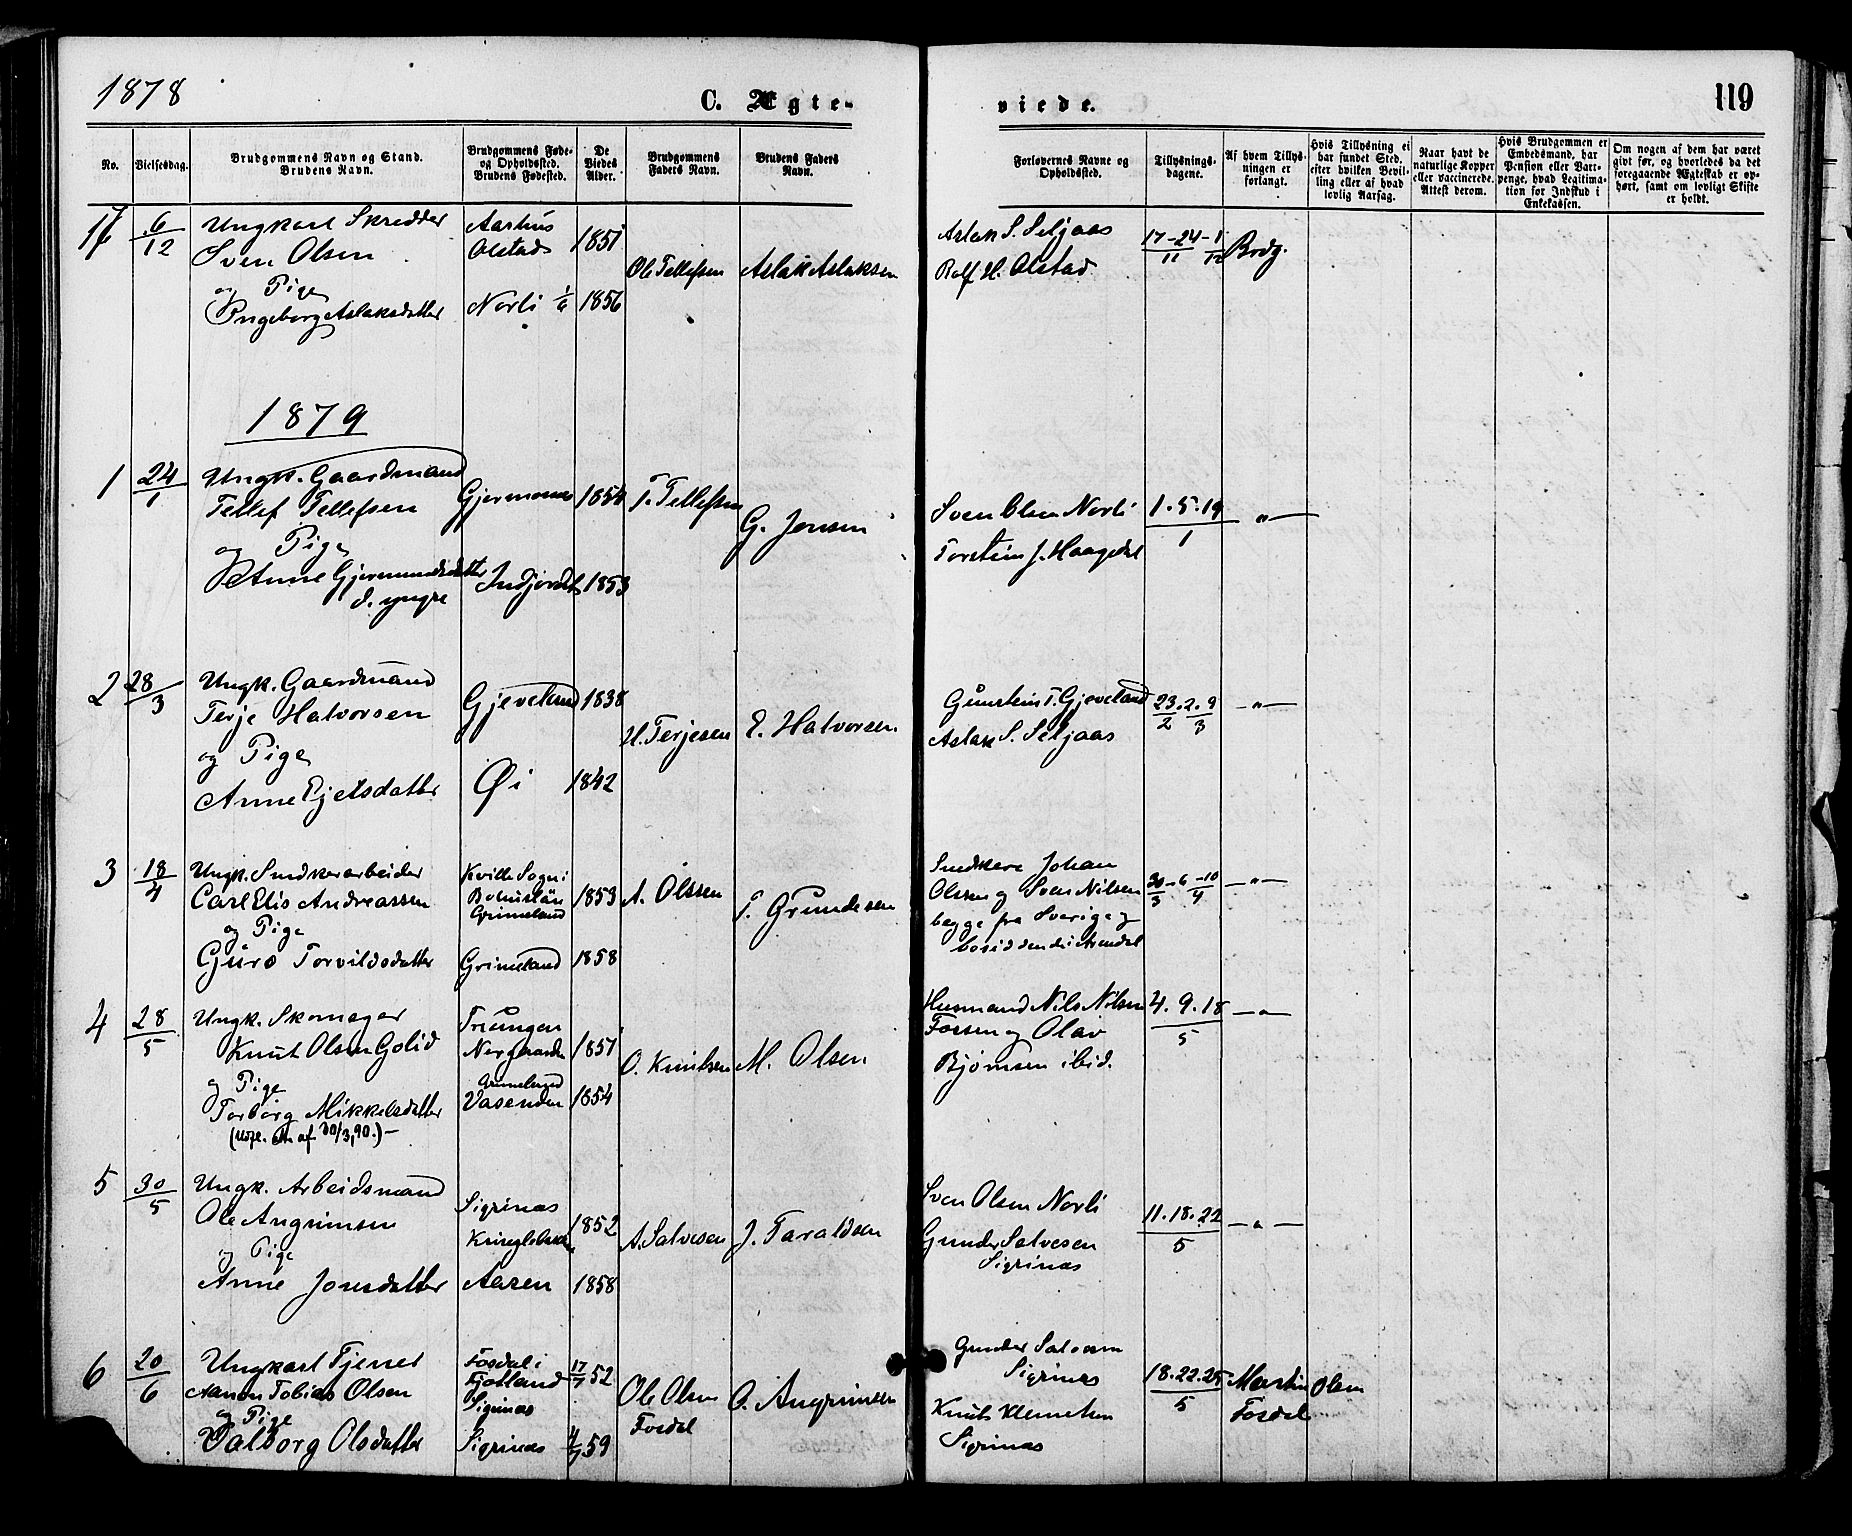 1878
C. Ægte-
viede.
119
No.
Vielsesdag.
Brudgommens Navn og Stand.
Brudens Navn.
Brudgommens Føde-
og Opholdssted.
Brudens Fødested.
De
Viedes
Alder.
Brudgommens
Faders Navn.
Brudens Faders
Navn.
Forlovernes Navne og
Opholdssted.
Tillysnings-
dagene.
Af hvem Tillys-
ningen er
forlangt.
Hvis Tillysning ei
har fundet Sted,
efter hvilken Bevil-
ling eller af hvad
lovlig Aarsag.
Naar havt de
naturlige Kopper
eller vaccinerede.
Attest derom.
Hvis Brudgommen er
Embedsmand, har
Pension eller Vart-
penge, hvad Legitima-
tion for Indskud i
Enkekassen.
Om nogen af dem har været
givt før, og hvorledes da det
foregaaende Ægteskab er op-
hørt, samt om lovligt Skifte
er holdt.
17
6/12
Ungkarl Skredder
Sven Olsen
og Pige
Ingeborg Aslaksdatter
Aarhus
Olstad
Norli 1/6
1851
1856
Ole Tellefsen
Aslak Aslaksen
Aslak S. Seljaas
Rolf H. Olstad
17-24/11 - 1/12
Brdg.
1879
1
24/1
Ungk. Gaardmand
Tellef Tellefsen
og Pige
Anne Gjermundsdatter
d. yngre
Gjermones
Indjordet
1854
1853
T. Tellefsen
G. Jensen
Sven Olsen Norli
Torstein J. Haagedal
1. 5. 19/1
— " —
2
28/3
Ungk. Gaardmand
Terje Halvorsen
og Pige
Anne Ejelsdatter
Gjeveland
Øi
1838
1842
H. Terjesen
E. Halvorsen
Gunstein T. Gjeveland
Aslak S. Seljaas
23/2. 2. 9/3
— " —
3
18/4
Ungk. Snedkerarbeider
Carl Elis Andreassen
og Pige
Guro Torvildsdatter
Kville Sogn i
Bohuslän
Grimeland
Grimeland
1853
1858
A. Olssen
T. Grundesen
Snedkere Johan
Olsen og Sven Nilsen
begge fra Sverige og
bosiddende i Arendal
30/3 - 6 - 10/4
— " —
4
28/5
Ungk. Skomager
Knut Olsen Golid
og Pige
Torborg Mikkelsdatter
af 30/3, 90.) —
Triungen
Nergaarden
Grimeland
Vasenden
1851
1854
O. Knutsen
M. Olsen
Husmand Nils Nilsen
Fossen og Olav
Bjørnsen ibid.
4. 9. 18/5
— " —
5
30/5
Ungk. Arbeidsmand
Ole Angrimsen
og Pige
Anne Jonsdatter
Sigrinas
Aasen
1852
1858
A. Salvesen
J. Taraldsen
Sven Olsen Norli
Gunder Salvesen
Sigrinas
11. 18. 22/5
— " —
6
20/6
Ungkarl Tjener
Aanon Tobias Olsen
og Pige
Valborg Olsdatter
Fosdal i
Fjotland
Sigrinas
Sigrinas
17/7 52
4/7 59
Ole Olsen
Fosdal
O. Angrimsen
Gunder Salvesen
Sigrinas
Knut Klemetsen
Sigrinas
18. 22. 25/5
Martin Olsen
Fosdal